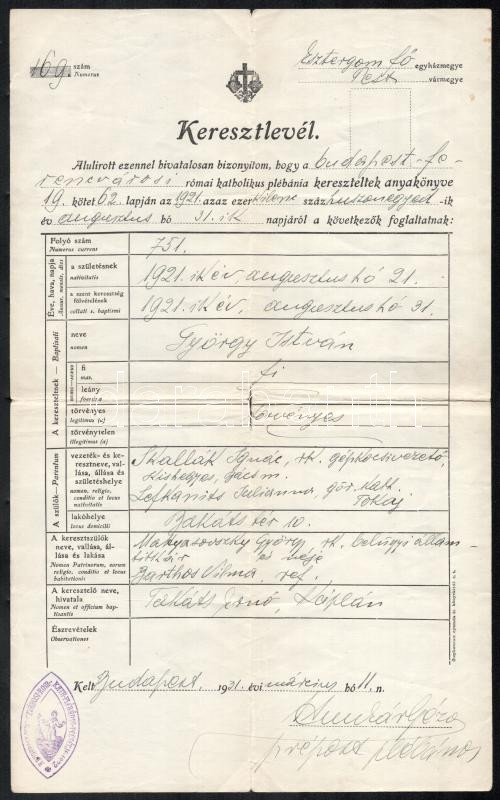 169. szám
Numerus
Esztergom fő egyházmegye
Pest vármegye
Keresztlevél.
Alulirott ezennel hivatalosan bizonyítom, hogy a budapest-fe-
rencvárosi római katholikus plébánia kereszteltek anyakönyve
19. kötet 62. lapján az 1921. azaz ezer kilenc száz huszonegyed -ik
év augusztus hó 31.ik napjáról a következők foglaltatnak:
Folyó szám
Numerus currens
751.
Éve, hava, napja
Annus, mensis, dies
a születésnek
nativitatis
1921.ik év augusztus hó 21.
a szent keresztség
fölvételének
collati s. baptismi
1921.ik év, augusztus hó 31.
A kereszteltnek — Baptisati
neve
nomen
György István
fi
mas.
fi
leány
foemina
törvényes
legitimus (a)
törvényes
törvénytelen
illegitimus (a)
A szülők — Parentum
vezeték- és ke-
resztneve, val-
lása, állása és
születéshelye
nomen, religio,
conditio et locus
nativitatis
Skallák Ignác, rk. gépkocsivezető,
Kishegyes, Bács m.
Julianna, gör. kath.
Tokaj
lakóhelye
locus domicilii
Bakáts tér 10.
A keresztszülők
neve, vallása, ál-
lása és lakása
Nomen Patrinorum, eorum
religio, conditio et locus
habitationis
György, rk. belügyi állam-
titkár és neje
Barthos Vilma, ref.
A keresztelő neve,
hivatala
Nomen et officium bap-
tisantis
Takáts Jenő, káplán
Észrevételek
Observationes
Kelt Budapest, 1931. évi március hó 11. n.
Géza
prépost plébános